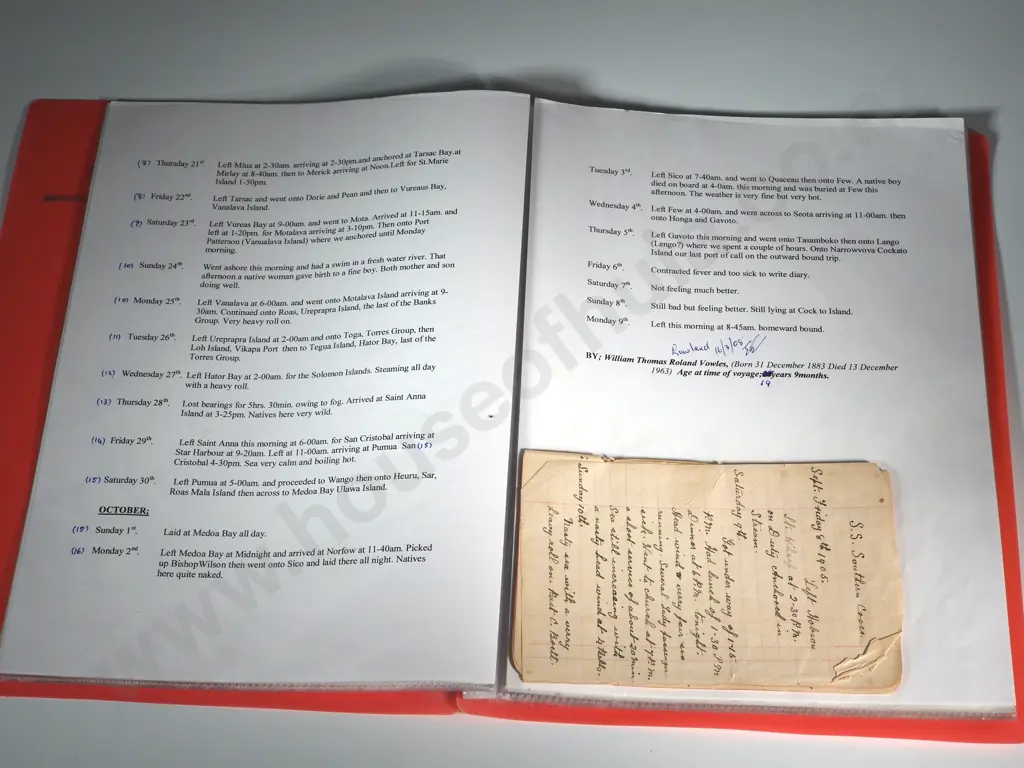 (7) Thursday 21st. Left Miua at 2-30am. arriving at 2-30pm.and anchored at Tarsac Bay.at
Mirlay at 8-40am. then to Merick arriving at Noon.Left for St.Marie
Island 1-50pm.
(8) Friday 22nd. Left Tarsac and went onto Dorie and Pean and then to Vureaus Bay,
Vanalava Island.
(9) Saturday 23rd. Left Vureas Bay at 9-00am. and went to Mota. Arrived at 11-15am. and
left at 1-20pm. for Motalava arriving at 3-10pm. Then onto Port
Patterson (Vanualava Island) where we anchored until Monday
morning.
(10) Sunday 24th. Went ashore this morning and had a swim in a fresh water river. That
afternoon a native woman gave birth to a fine boy. Both mother and son
doing well.
(10) Monday 25th. Left Vanalava at 6-00am. and went onto Motalava Island arriving at 9-
30am. Continued onto Roas, Ureprapra Island, the last of the Banks
Group. Very heavy roll on.
(11) Tuesday 26th. Left Ureprapra Island at 2-00am and onto Toga, Torres Group, then
Loh Island, Vikapa Port then to Tegua Island, Hator Bay, last of the
Torres Group.
(12) Wednesday 27th. Left Hator Bay at 2-00am. for the Solomon Islands. Steaming all day
with a heavy roll.
(13) Thursday 28th. Lost bearings for 5hrs. 30min. owing to fog. Arrived at Saint Anna
Island at 3-25pm. Natives here very wild.
(14) Friday 29th. Left Saint Anna this morning at 6-00am. for San Cristobal arriving at
Star Harbour at 9-20am. Left at 11-00am. arriving at Pumua San (15)
Cristobal 4-30pm. Sea very calm and boiling hot.
(15) Saturday 30th. Left Pumua at 5-00am. and proceeded to Wango then onto Heuru, Sar,
Roas Mala Island then across to Medoa Bay Ulawa Island.
OCTOBER;
(15) Sunday 1st. Laid at Medoa Bay all day.
(16) Monday 2nd. Left Medoa Bay at Midnight and arrived at Norfow at 11-40am. Picked
up BishopWilson then went onto Sico and laid there all night. Natives
here quite naked.
Tuesday 3rd. Left Sico at 7-40am. and went to Quaceau then onto Few. A native boy
died on board at 4-0am. this morning and was buried at Few this
afternoon. The weather is very fine but very hot.
Wednesday 4th. Left Few at 4-00am. and went across to Seota arriving at 11-00am. then
onto Honga and Gavoto.
Thursday 5th. Left Gavoto this morning and went onto Tasamboko then onto Lango
(Lengo?) where we spent a couple of hours. Onto Narrowvova Cockato
Island our last port of call on the outward bound trip.
Friday 6th. Contracted fever and too sick to write diary.
Saturday 7th. Not feeling much better.
Sunday 8th. Still bad but feeling better. Still lying at Cock to Island.
Monday 9th. Left this morning at 8-45am. homeward bound.
Rowland
BY; William Thomas Roland Vowles, (Born 31 December 1883 Died 13 December
1963) Age at time of voyage; years 9months.
19
S.S. Southern Cross
Sept. Friday 8th 1905.
Left Hobson
St. Wharf at 2-30 P.M.
on Duty Anchored in
Stream.
Saturday 9th.
Got under way of 1-45
P.M. Had lunch of 1.30 P.M
Dinner at 6 P.M. tonight.
Head wind & very fair sea
running. Several Lady passengers
sick. Went to church at 7 P.M.
a short service of about 20 min.
Sea still increasing with
a nasty head wind at 4 Bells.
Sunday 10th.
Nasty sea with a very
heavy roll on.
www.houseof